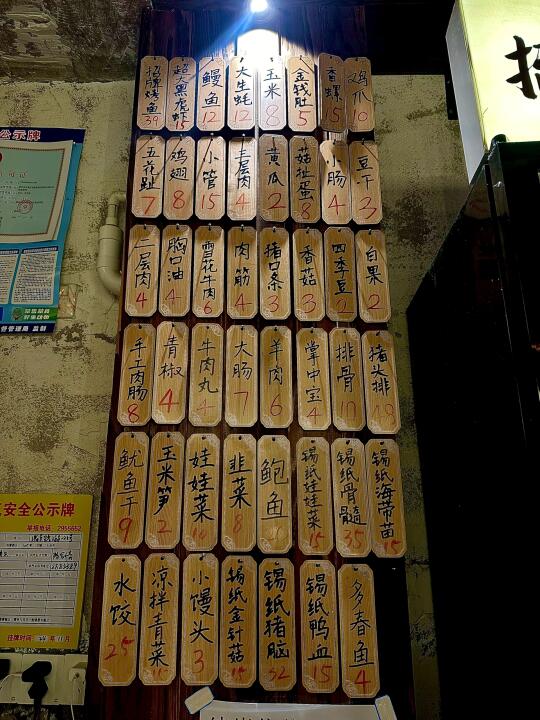 招牌烤鱼 39
超大黑虎虾 15
鳗鱼 12
大生蚝 12
玉米 8
金钱肚 5
香螺 15
鸡爪 10
五花趾 7
鸡翅 8
小管 15
三层肉 4
黄瓜 2
菇扯蛋 8
小肠 4
豆干 3
二层肉 4
胸口油 4
雪花牛肉 6
肉筋 4
猪口条 3
香菇 3
四季豆 2
白果 2
手工肉肠 8
青椒 4
牛肉丸 4
大肠 7
羊肉 6
掌中宝 4
排骨 10
猪头排
鱿鱼干 9
玉米笋 2
娃娃菜 10
韭菜 8
鲍鱼 10
锡纸娃娃菜 15
锡纸骨髓 35
锡纸海带苗 15
水饺 25
凉拌青菜
小馒头 3
锡纸金针菇 15
锡纸猪脑 32
锡纸鸭血 15
多春鱼 4
招
公示牌
安全公示牌
举报电话 2955652
挂牌时间